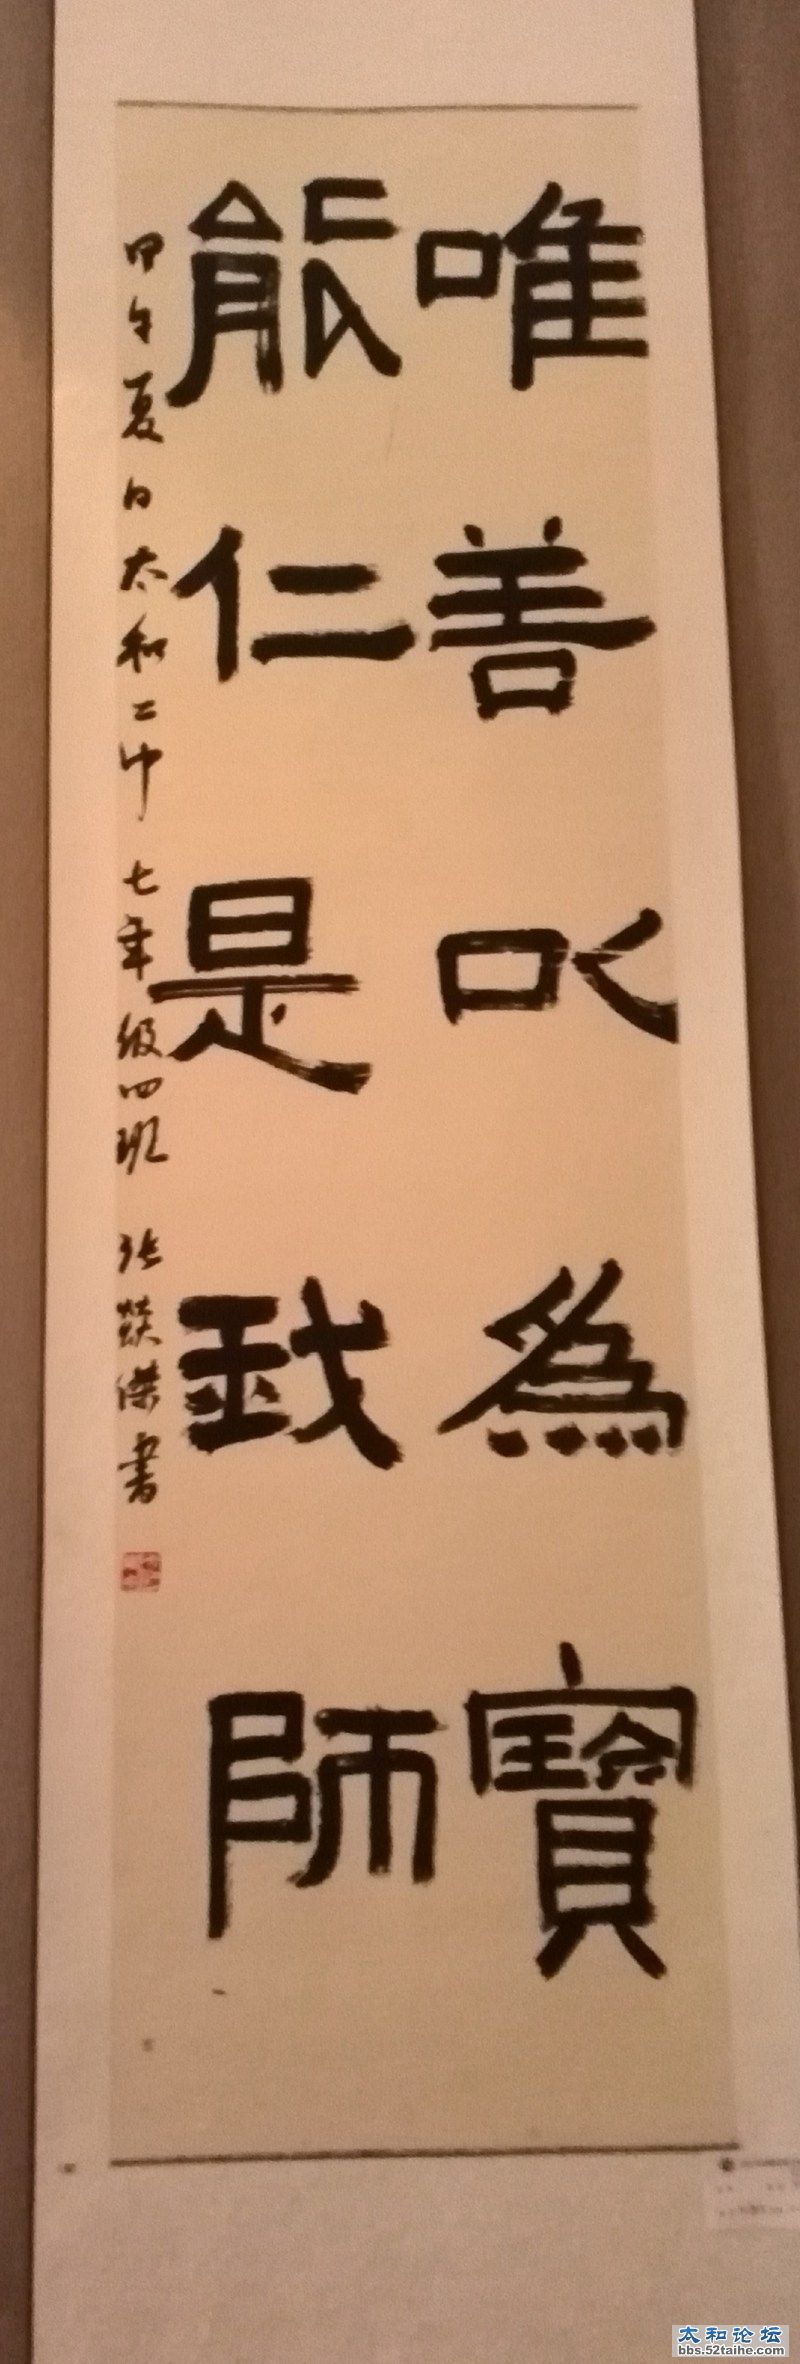 唯善以為寶
能仁是我師
甲午夏日太和二中 七年级四班 张燚傑書
太和论坛
bbs.52taihe.com